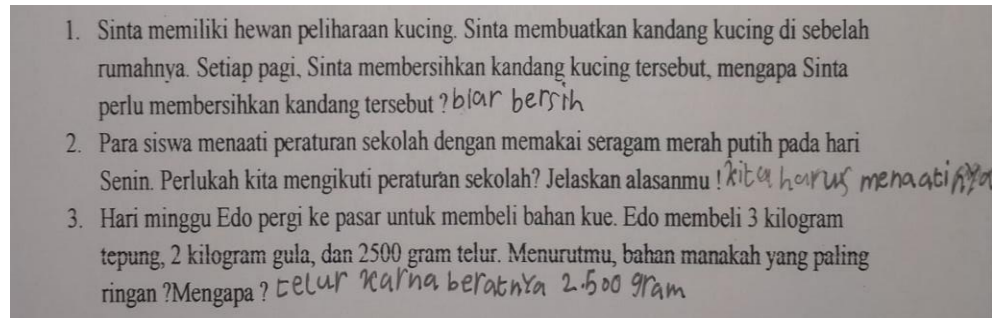 1. Sinta memiliki hewan peliharaan kucing. Sinta membuatkan kandang kucing di sebelah
rumahnya. Setiap pagi, Sinta membersihkan kandang kucing tersebut, mengapa Sinta
perlu membersihkan kandang tersebut ? biar bersih
2. Para siswa menaati peraturan sekolah dengan memakai seragam merah putih pada hari
Senin. Perlukah kita mengikuti peraturan sekolah? Jelaskan alasanmu ! kita harus menaatinya
3. Hari minggu Edo pergi ke pasar untuk membeli bahan kue. Edo membeli 3 kilogram
tepung, 2 kilogram gula, dan 2500 gram telur. Menurutmu, bahan manakah yang paling
ringan ?Mengapa ? telur karna beratnya 2.500 gram